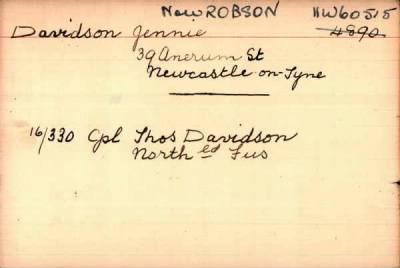 Now ROBSON HW60515
Davidson Jennie 4890
39 Ancrum St
Newcastle-on-Tyne
16/330 Cpl Thos Davidson
North'ld Fus